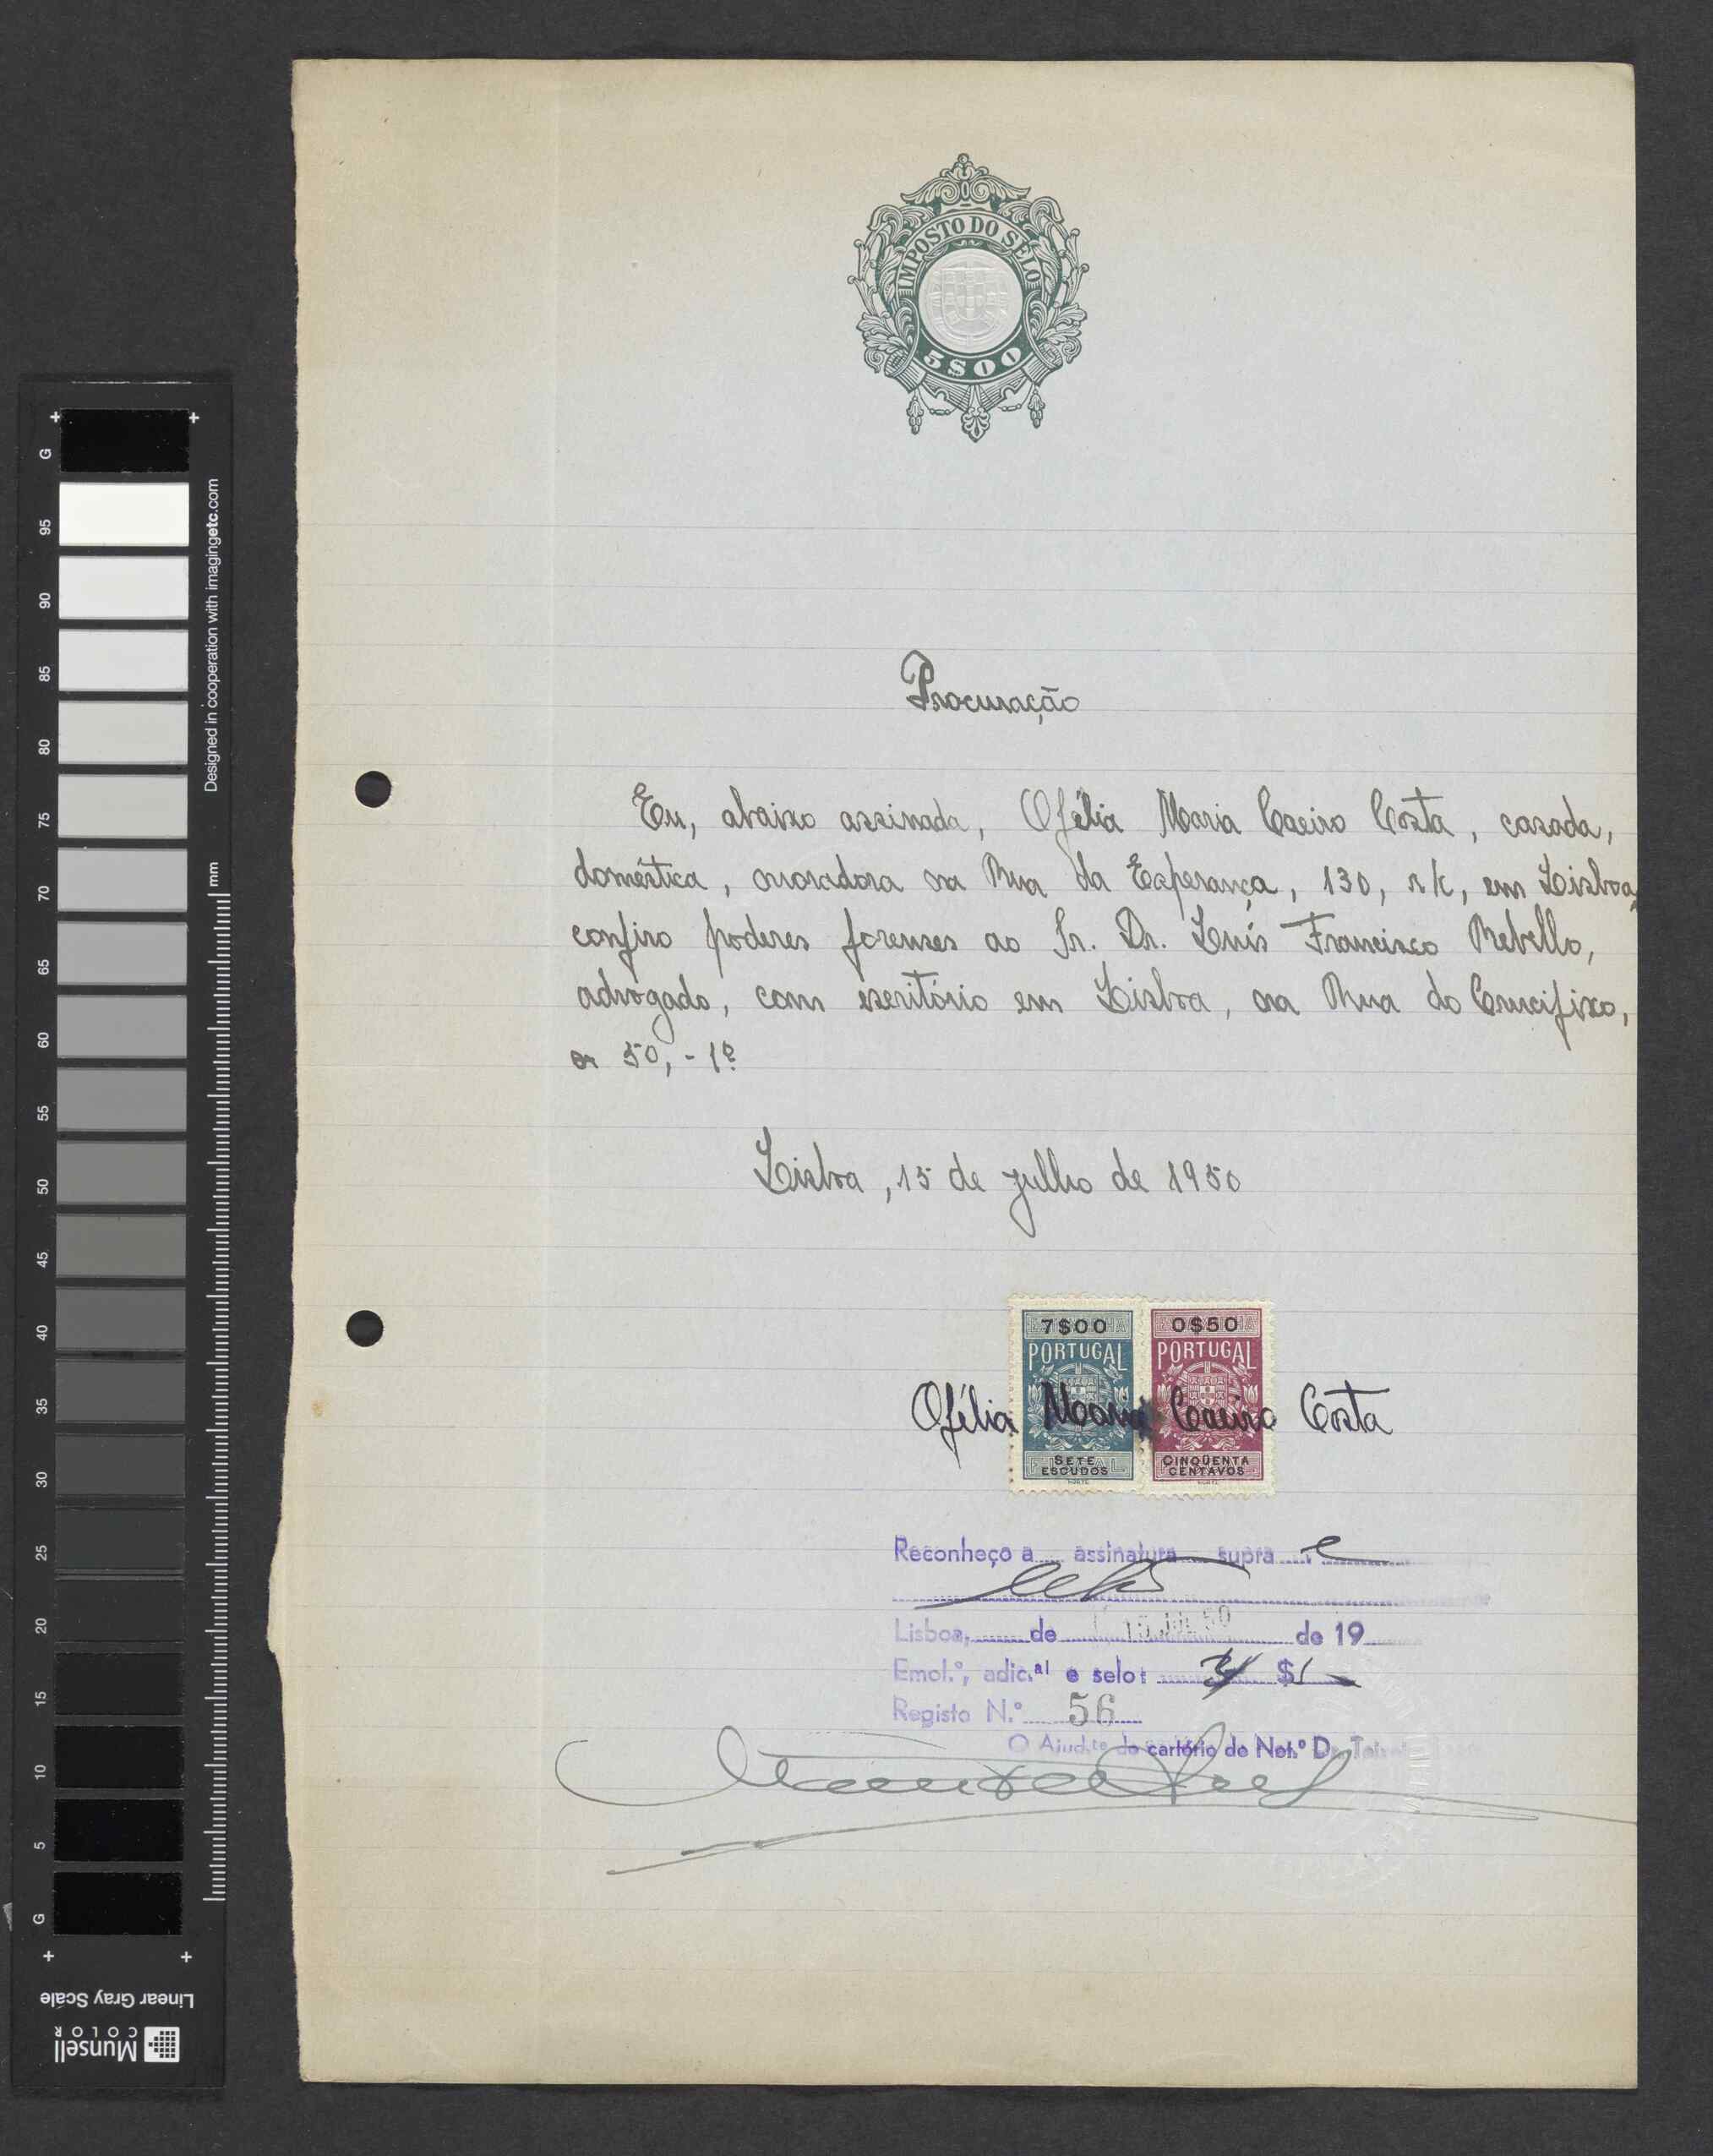 IMPOSTO DO SELO
5$00
Procuração
Eu, abaixo assinada, Ofélia Maria Caeiro Costa, casada,
doméstica, moradora na Rua da Esperança, 130, r/c, em Lisboa,
confiro poderes forenses ao Sr. Dr. Luís Francisco Rebello,
advogado, com escritório em Lisboa, na Rua do Crucifixo,
nº 50, - 1º
Lisboa, 15 de julho de 1950
7$00 0$50
PORTUGAL PORTUGAL
Ofélia Maria Caeiro Costa
SETE ESCUDOS
CINQÜENTA CENTAVOS
Reconheço a assinatura supra e
Lisboa, de 15 JUL 50 de 19
Emol.º, adic.al e selo: $
Registo N.º 56
O Ajud.te do cartório do Not.º Dr.
G 95 90 85 80 75 70 65 60 55 50 45 40 35 30 25 20 15 10 5 G
Designed in cooperation with imagingetc.com
mm
Linear Gray Scale
Munsell
COLOR